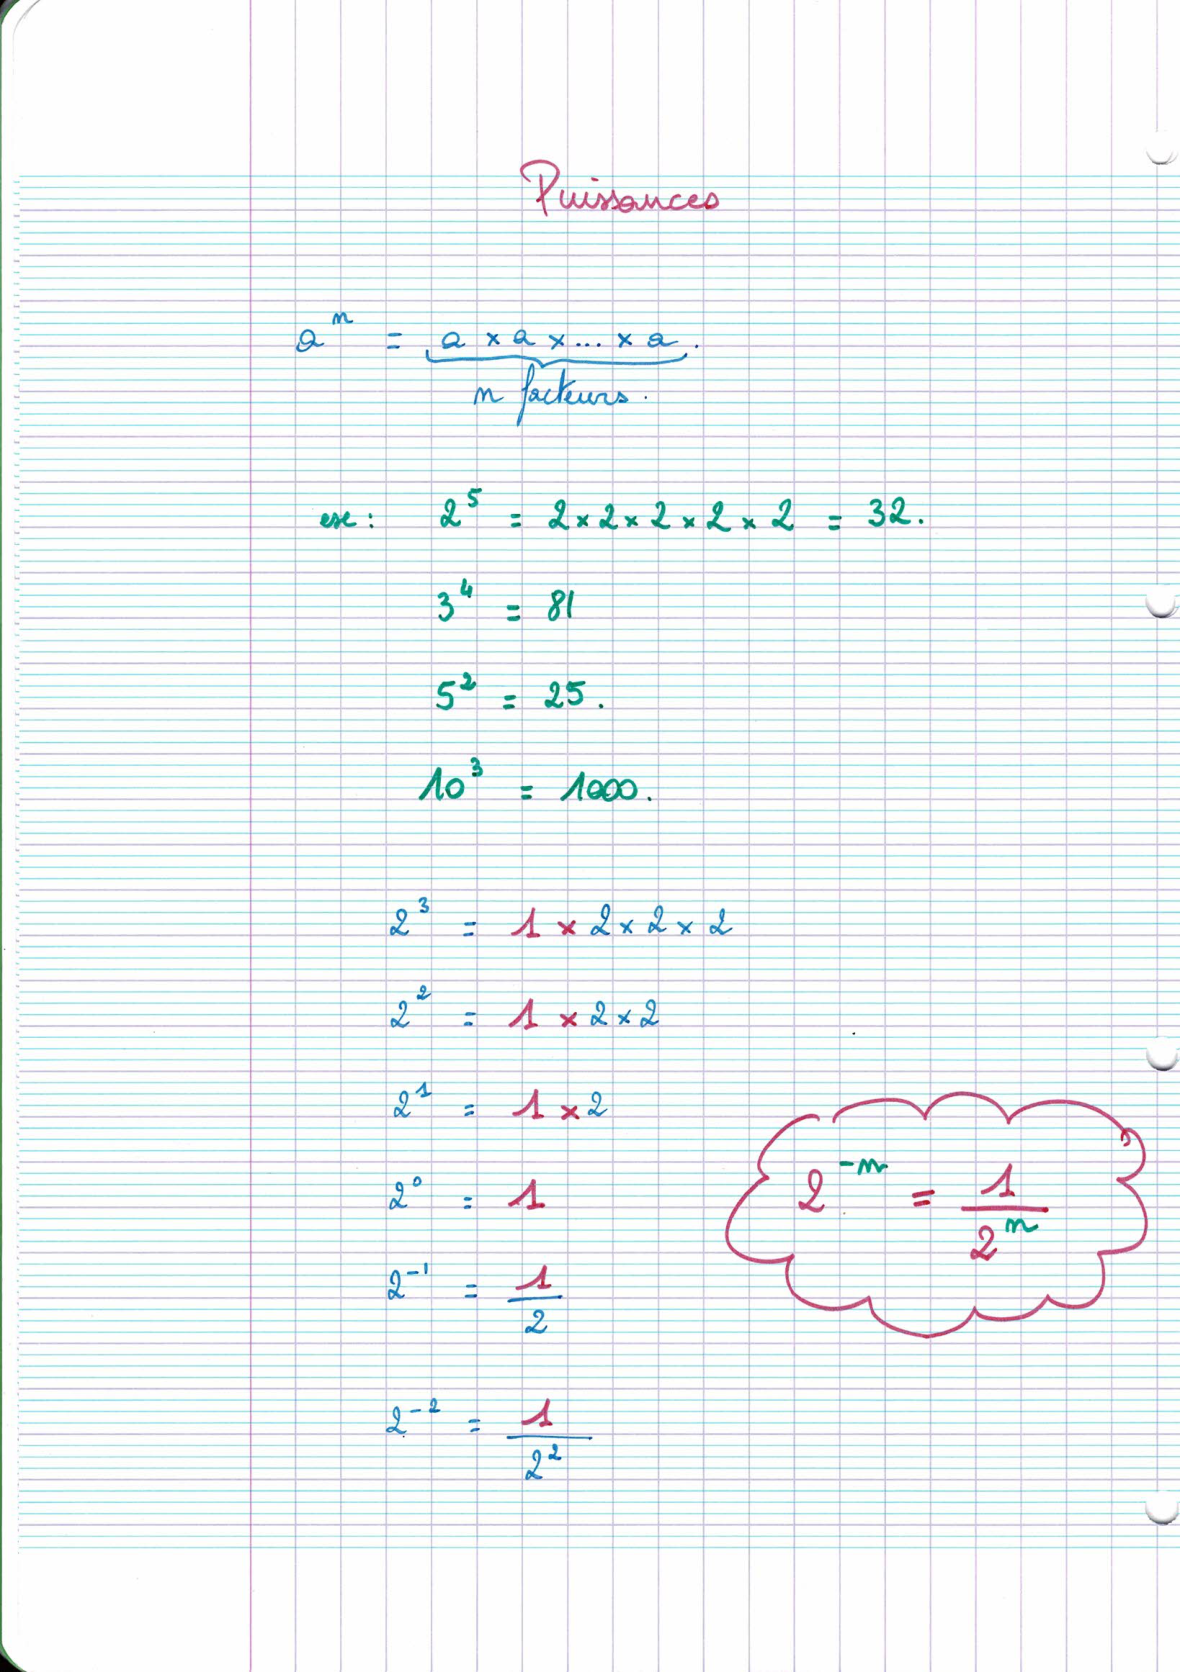 Puissances
aⁿ = a × a × ... × a.
n facteurs.
ex : 2⁵ = 2 × 2 × 2 × 2 × 2 = 32.
3⁴ = 81
5² = 25.
10³ = 1000.
2³ = 1 × 2 × 2 × 2
2² = 1 × 2 × 2
2¹ = 1 × 2
2⁰ = 1
2⁻ⁿ = 1/2ⁿ
2⁻¹ = 1/2
2⁻² = 1/2²